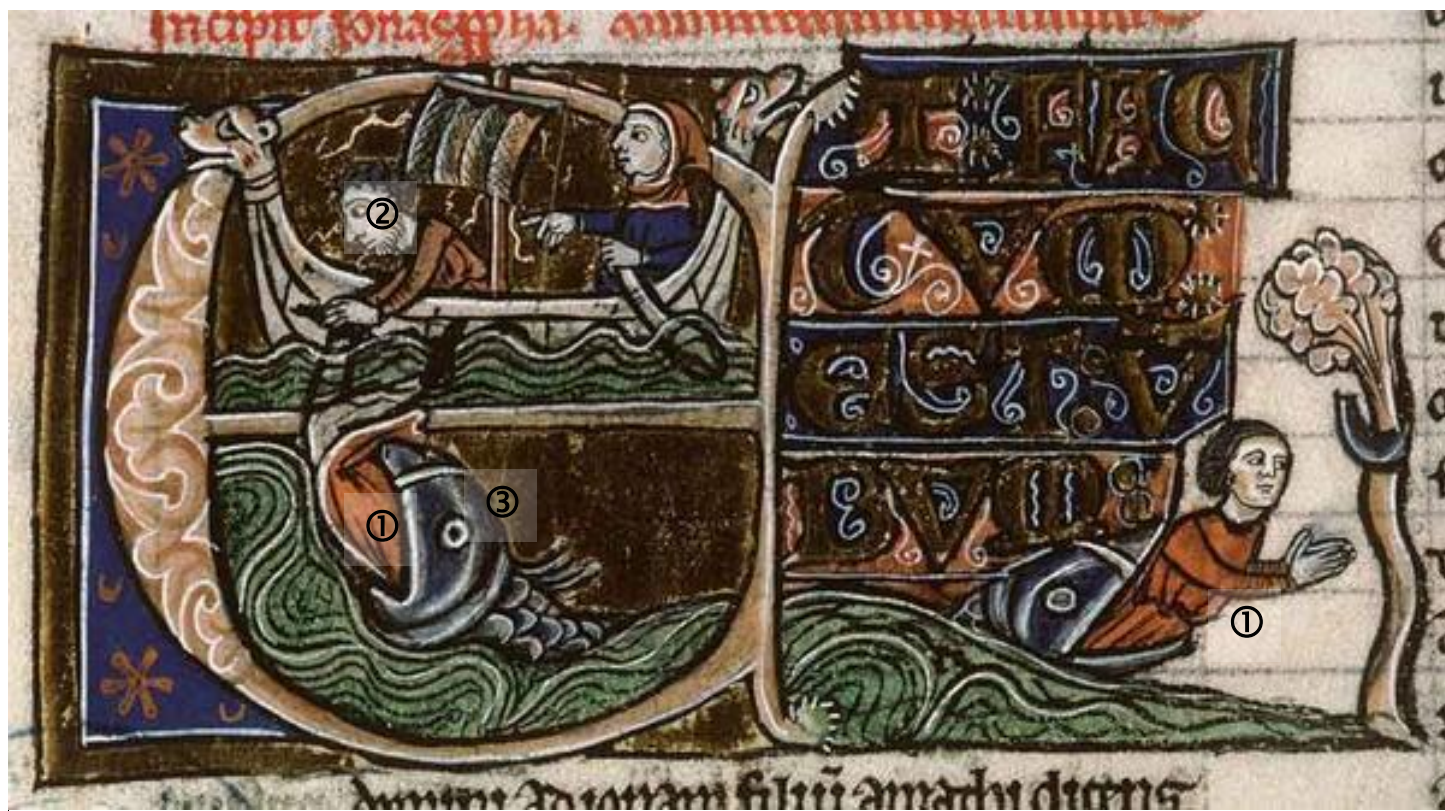 Incipit ionas ppha.
ET FAC
TVM
EST V
BVM
②
③
①
①
domini ad ionam filiū amathi dicens